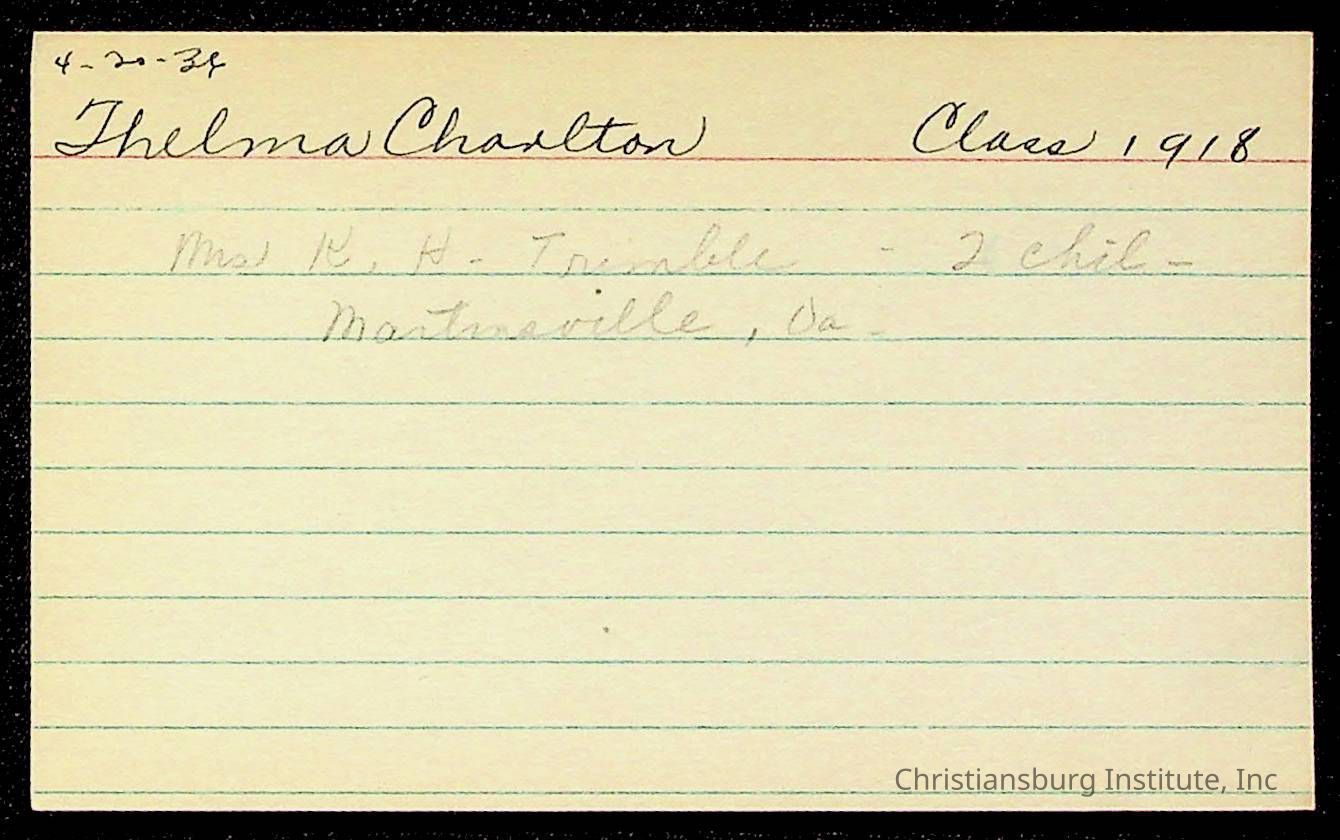 4-20-34
Thelma Charlton Class 1918
Mrs K. H. Trimble - 2 chil-
Martinsville, Va-
Christiansburg Institute, Inc